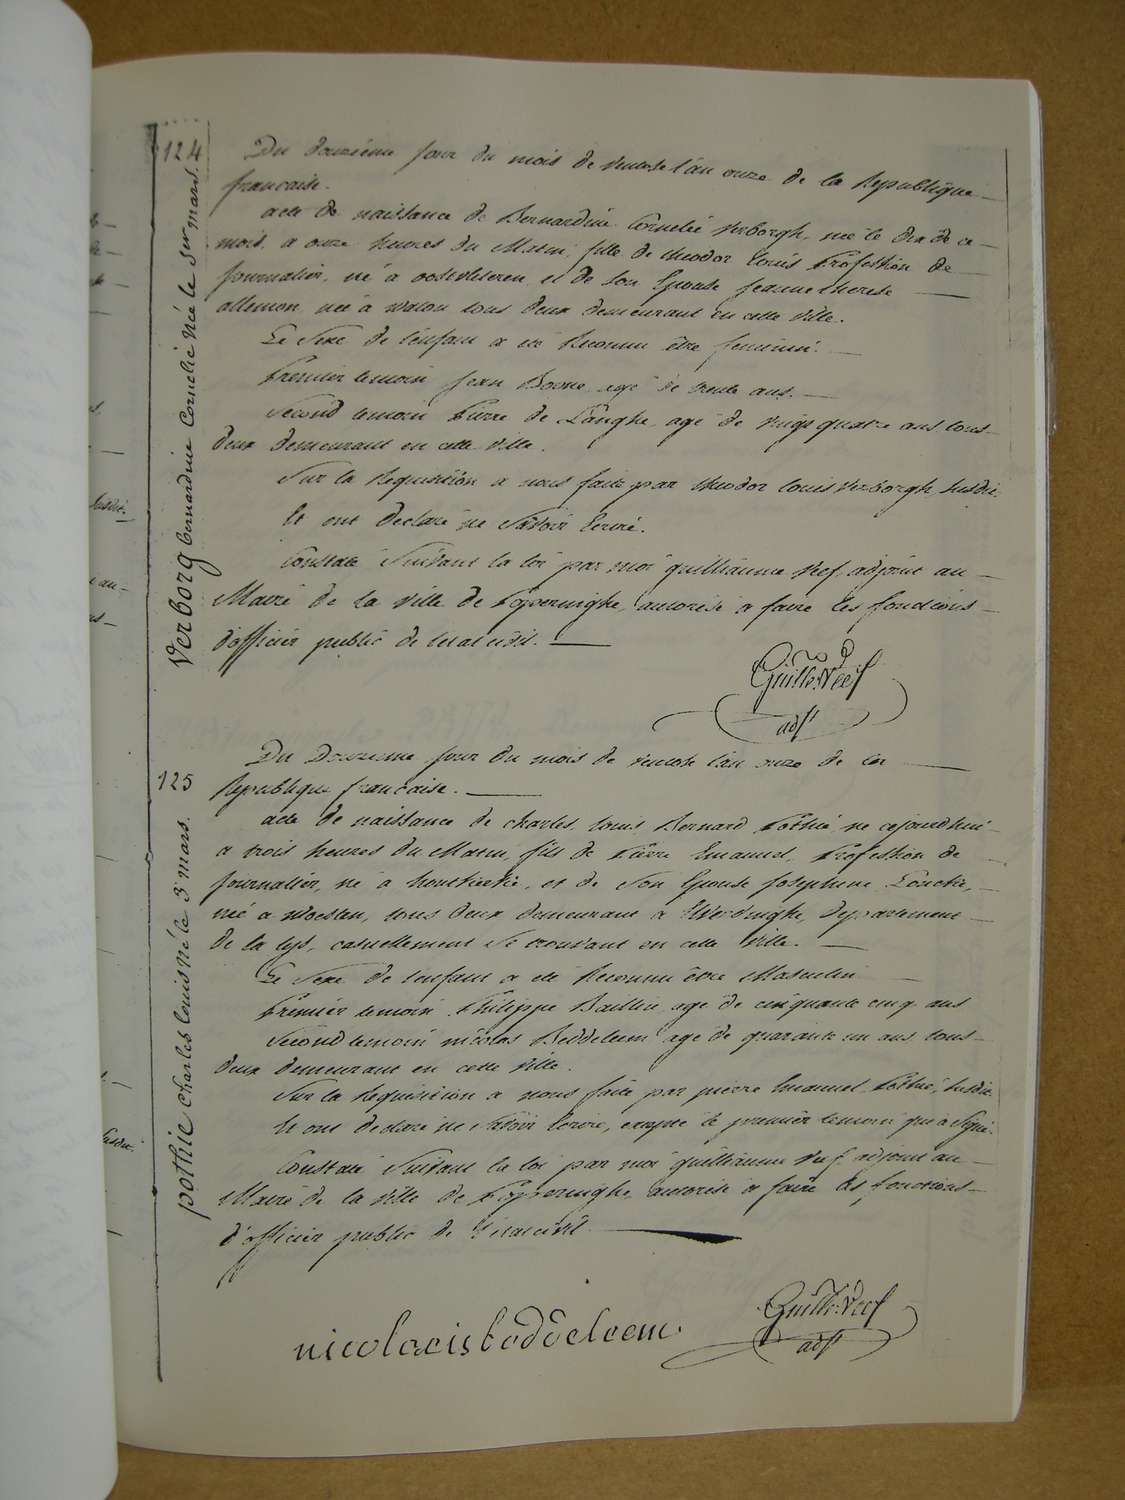 124
Verborg bernardine Cornelie née le 1er mars.
Du douzième jour du mois de ventose l'an onze de la Republique
francaise.
acte de naissance de Bernardine Cornelie Verborgh, née le dix de ce
mois, a onze heures du Matin, fille de theodor Louis Profession de
journalier, né a oostvleteren, et de son Epouse jeanne therese
allemon née à Watou tous deux demeurant en cette ville.
Le Sexe de l'enfant a été Reconnu être feminin.
Premier temoin Jean Boone agé de trente ans.
Second temoin Pierre de Langhe, agé de vingt quatre ans tous
deux demeurant en cette ville.
Sur la Requisition a nous faite par theodor louis Verborgh, susdit
Et ont declaré ne savoir Ecrire.
Constaté Suivant la loi par moi guilliaume Veef, adjoint au
Maire de la ville de Poperinghe, autorisé a faire les fonctions
d'officier public de l'etat civil.
Guille. Veef
adjt
125
pothie charles louis né le 3 mars.
Du Douzieme jour du mois de ventose l'an onze de la
Republique francaise.
acte de naissance de charles Louis Bernard Pothié né cejourd'hui
a trois heures du Matin, fils de Pierre Emanuel, Profession de
journalier, né a , et de Son Epouse Josephine ,
née a Woesten, tous deux demeurant a Elverdinghe, departement
de la lys, casuellement se trouvant en cette Ville.
Le Sexe de l'enfant a été Reconnu être Masculin
Premier temoin Philippe Baillie, agé de cinquante cinq ans
Second temoin nicolas Beddeleem agé de quarante un ans tous
deux demeurant en cette ville.
Sur la Requisition a nous faite par pierre Emanuel Pothié, susdit
Et ont declaré ne savoir Ecrire, exepté le premier temoin qui a Signé.
Constaté Suivant la loi par moi guilliaume Veef adjoint au
Maire de la ville de Poperinghe, autorisé a faire les fonctions
d'officier public de l'etat civil
nicolaeis boddeleem
Guille. Veef
adjt